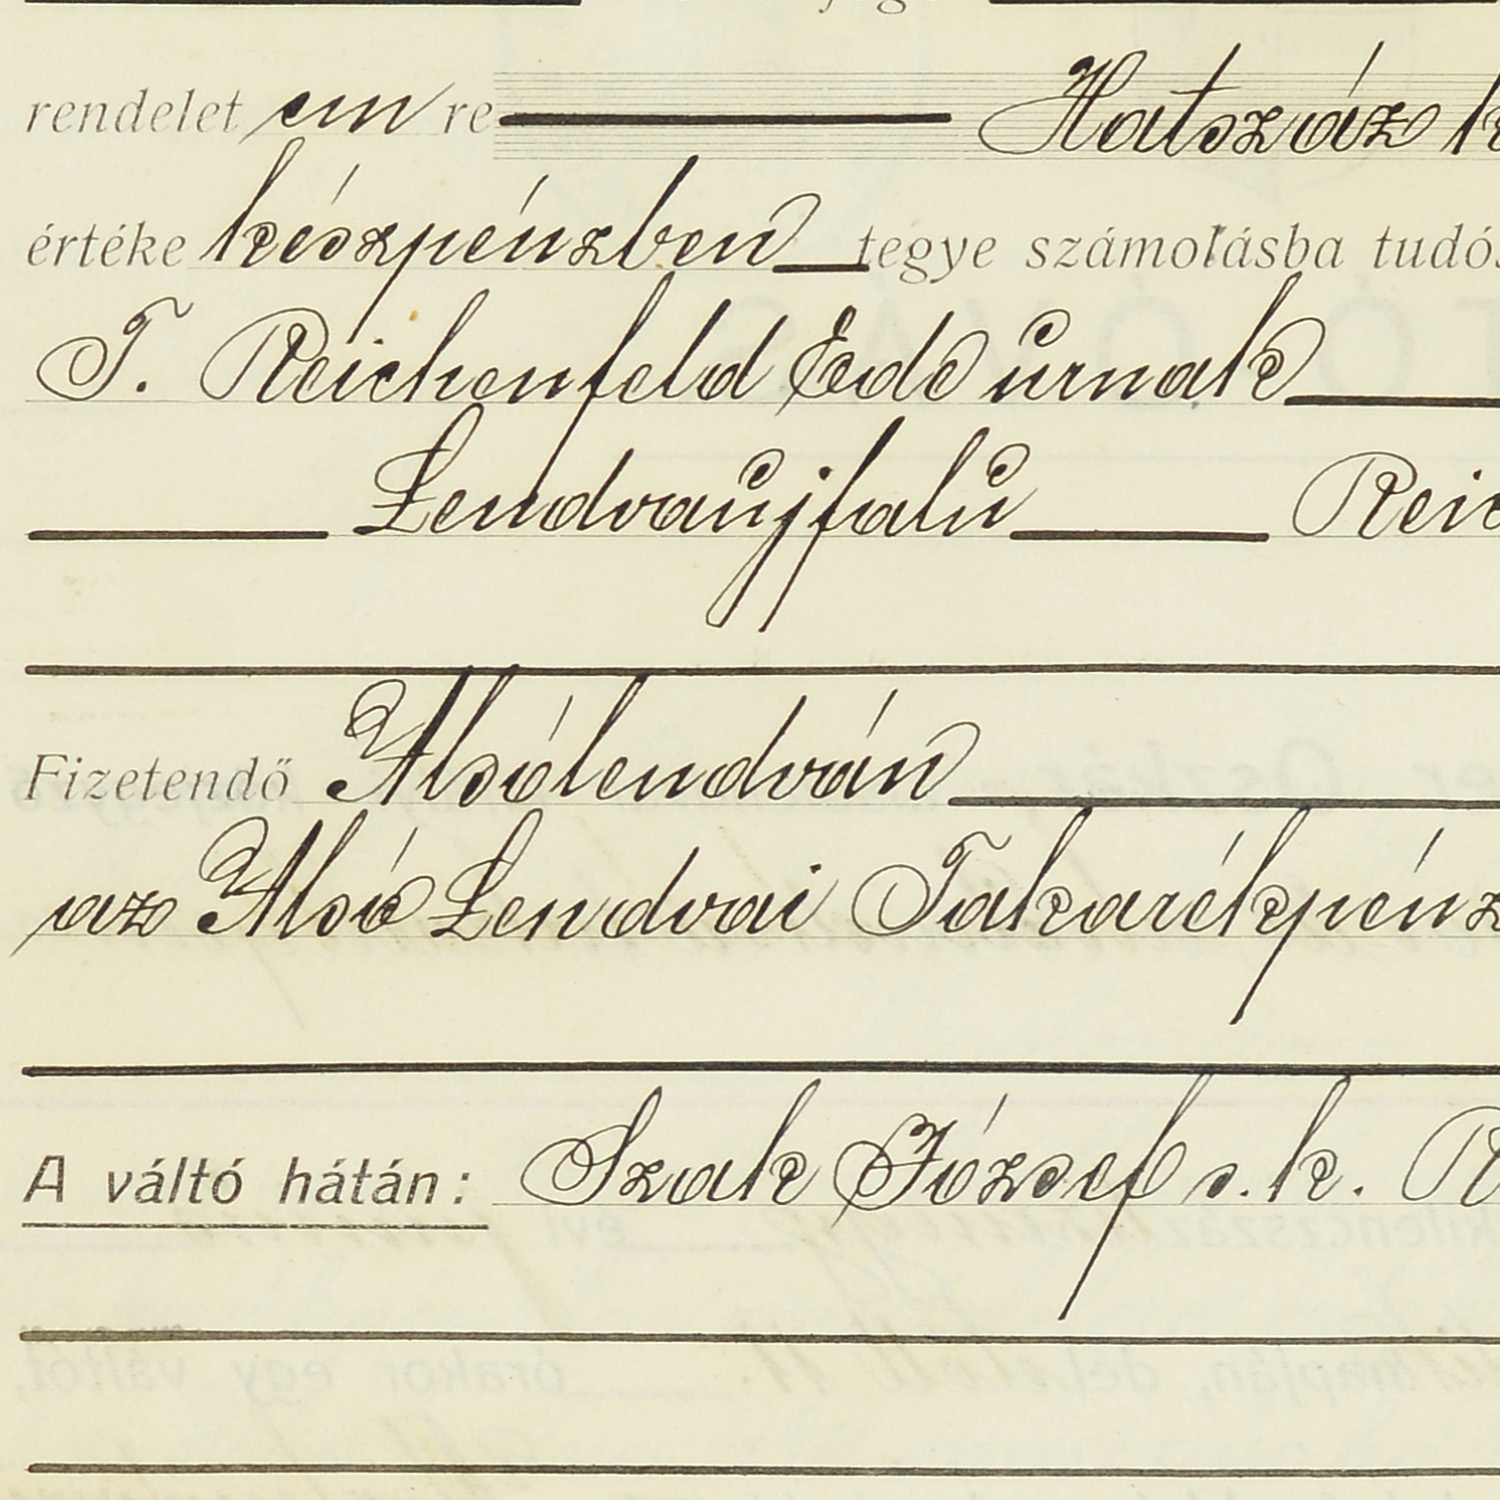 rendelet em re Hatszáz k
értéke készpénzben tegye számolásba tudós
T. Reichenfeld Ede úrnak
Lendvaújfalu Reic
Fizetendő Alsólendván
az Alsó Lendvai Takarékpénz
A váltó hátán: Szak József s. k. R